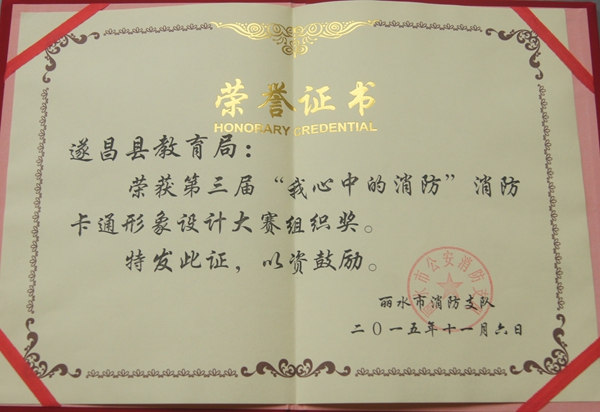 荣誉证书
HONORARY CREDENTIAL
遂昌县教育局：
荣获第三届“我心中的消防”消防
卡通形象设计大赛组织奖。
特发此证，以资鼓励。
丽水市公安消防支队
丽水市消防支队
二〇一五年十一月六日